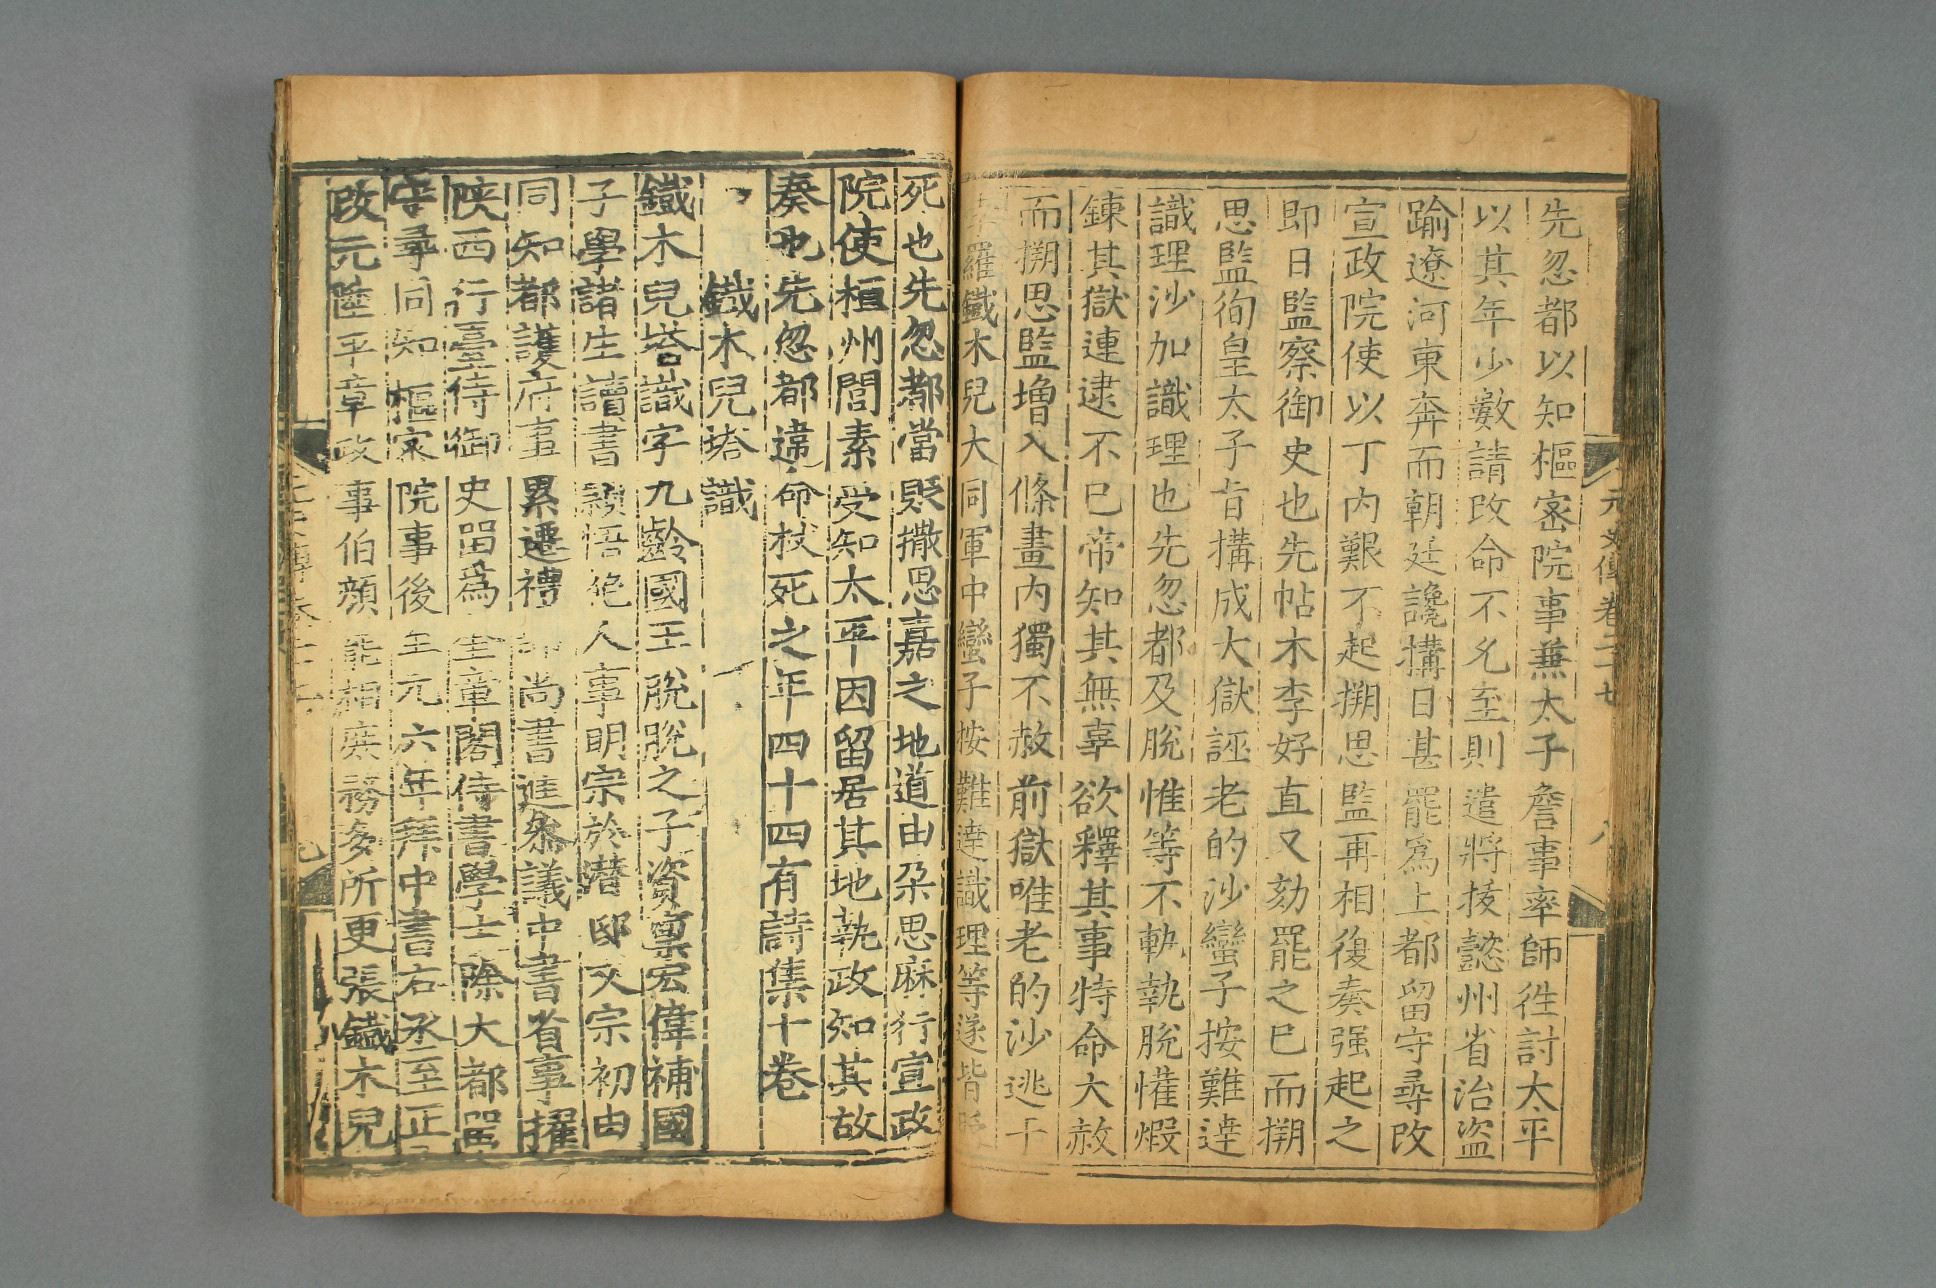 先忽都以知樞密院事兼太子詹事率師徃討太平
以其年少數請改命不允至則遣將㨋懿州省治盜
踰遼河東奔而朝廷讒搆日甚罷爲上都留守尋改
宣政院使以丁內艱不起搠思監再相復奏强起之
即日監察御史也先帖木李好直又劾罷之已而搠
思監徇皇太子旨搆成大獄誣老的沙蠻子按難達
識理沙加識理也先忽都及脫惟等不軌執脫懽煆
鍊其獄連逮不已帝知其無辜欲釋其事特命大赦
而搠思監增入條畫內獨不赦前獄唯老的沙逃于
羅鐵木兒大同軍中蠻子按難達識理等遂皆貶
元史傳卷二十七 八
死也先忽都當貶撒思嘉之地道由朶思麻行宣政
院使桓州閭素受知太平因留居其地執政知其故
奏也先忽都違命杖死之年四十四有詩集十卷
鐵木兒塔識
鐵木兒塔識字九齡國王脫脫之子資稟宏偉補國
子學諸生讀書穎悟絶人事明宗於潛邸文宗初由
同知都護府事累遷禮部尚書進叅議中書省事擢
陝西行臺侍御史留爲奎章閣侍書學士除大都留
守尋同知樞密院事後至元六年拜中書右丞至正
改元陞平章政事伯顏罷相庶務多所更張鐵木兒